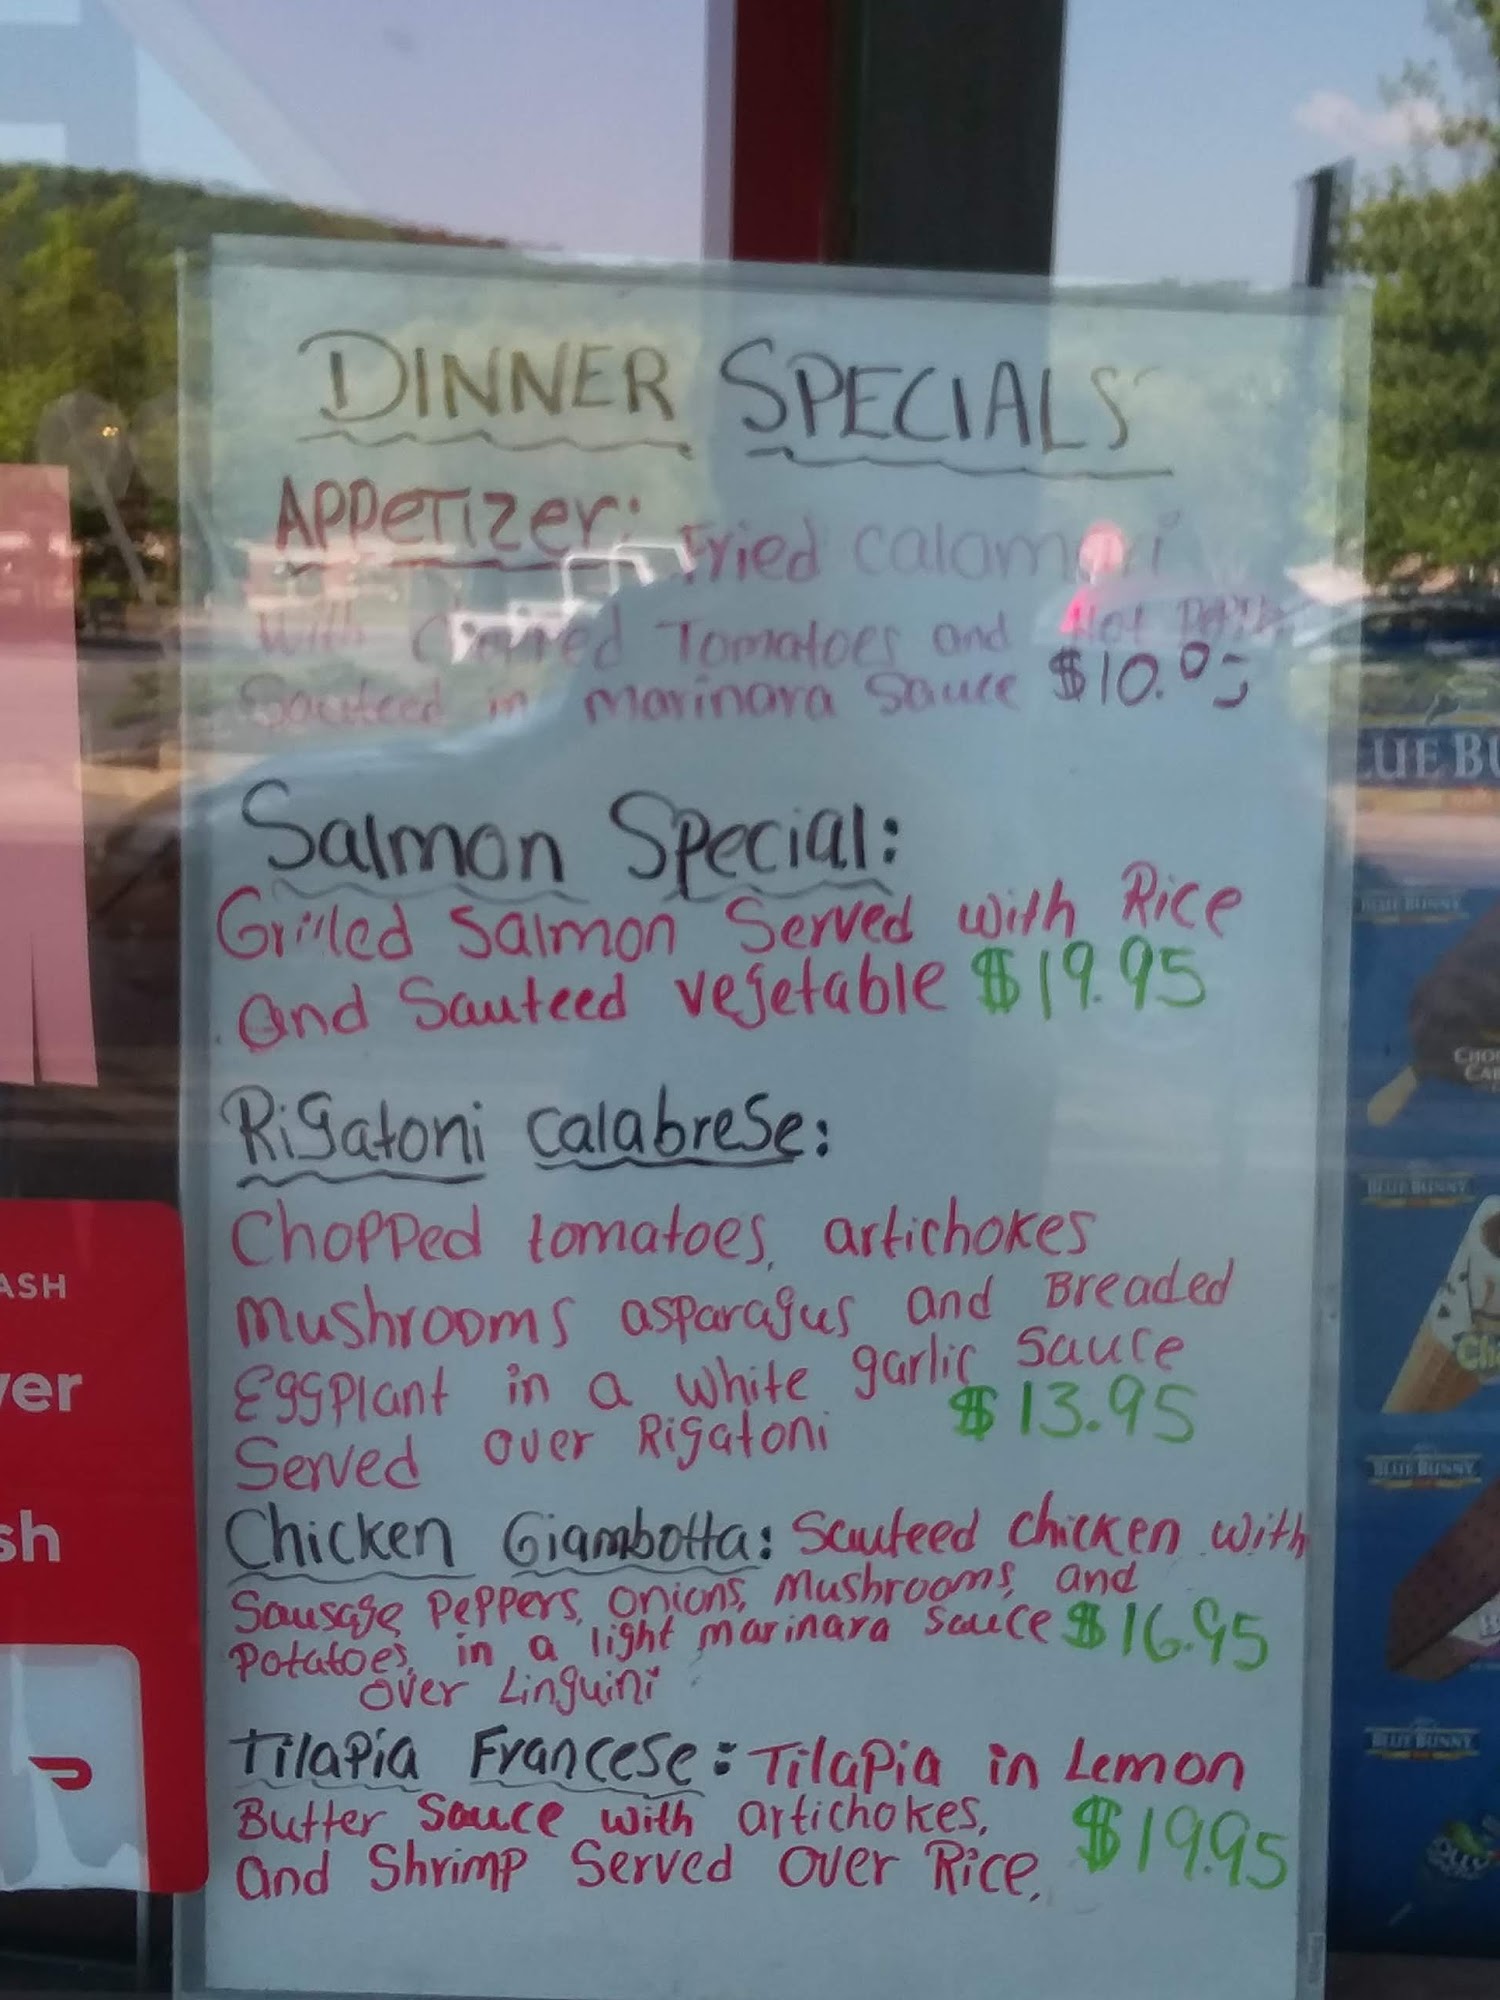 DINNER SPECIALS
APPeTizer: Fried Calamari
With Chopped Tomatoes and Hot
Sauteed in Marinara Sauce $10.95
Salmon Special:
Grilled Salmon Served with Rice
and Sauteed vegetable $19.95
Rigatoni Calabrese:
Chopped tomatoes, artichokes
Mushrooms asparagus and Breaded
Eggplant in a white garlic Sauce
Served over Rigatoni $13.95
Chicken Giambotta: Sauteed chicken with
Sausage, Peppers, onions, Mushrooms, and
Potatoes, in a light Marinara Sauce $16.95
over Linguini
Tilapia Francese: Tilapia in Lemon
Butter Sauce with artichokes,
and Shrimp Served over Rice. $19.95
ASH
ver
sh
LUE BU
BLUE BUNNY
CHO
CA
BLUE BUNNY
Cho
BLUE BUNNY
BLUE BUNNY